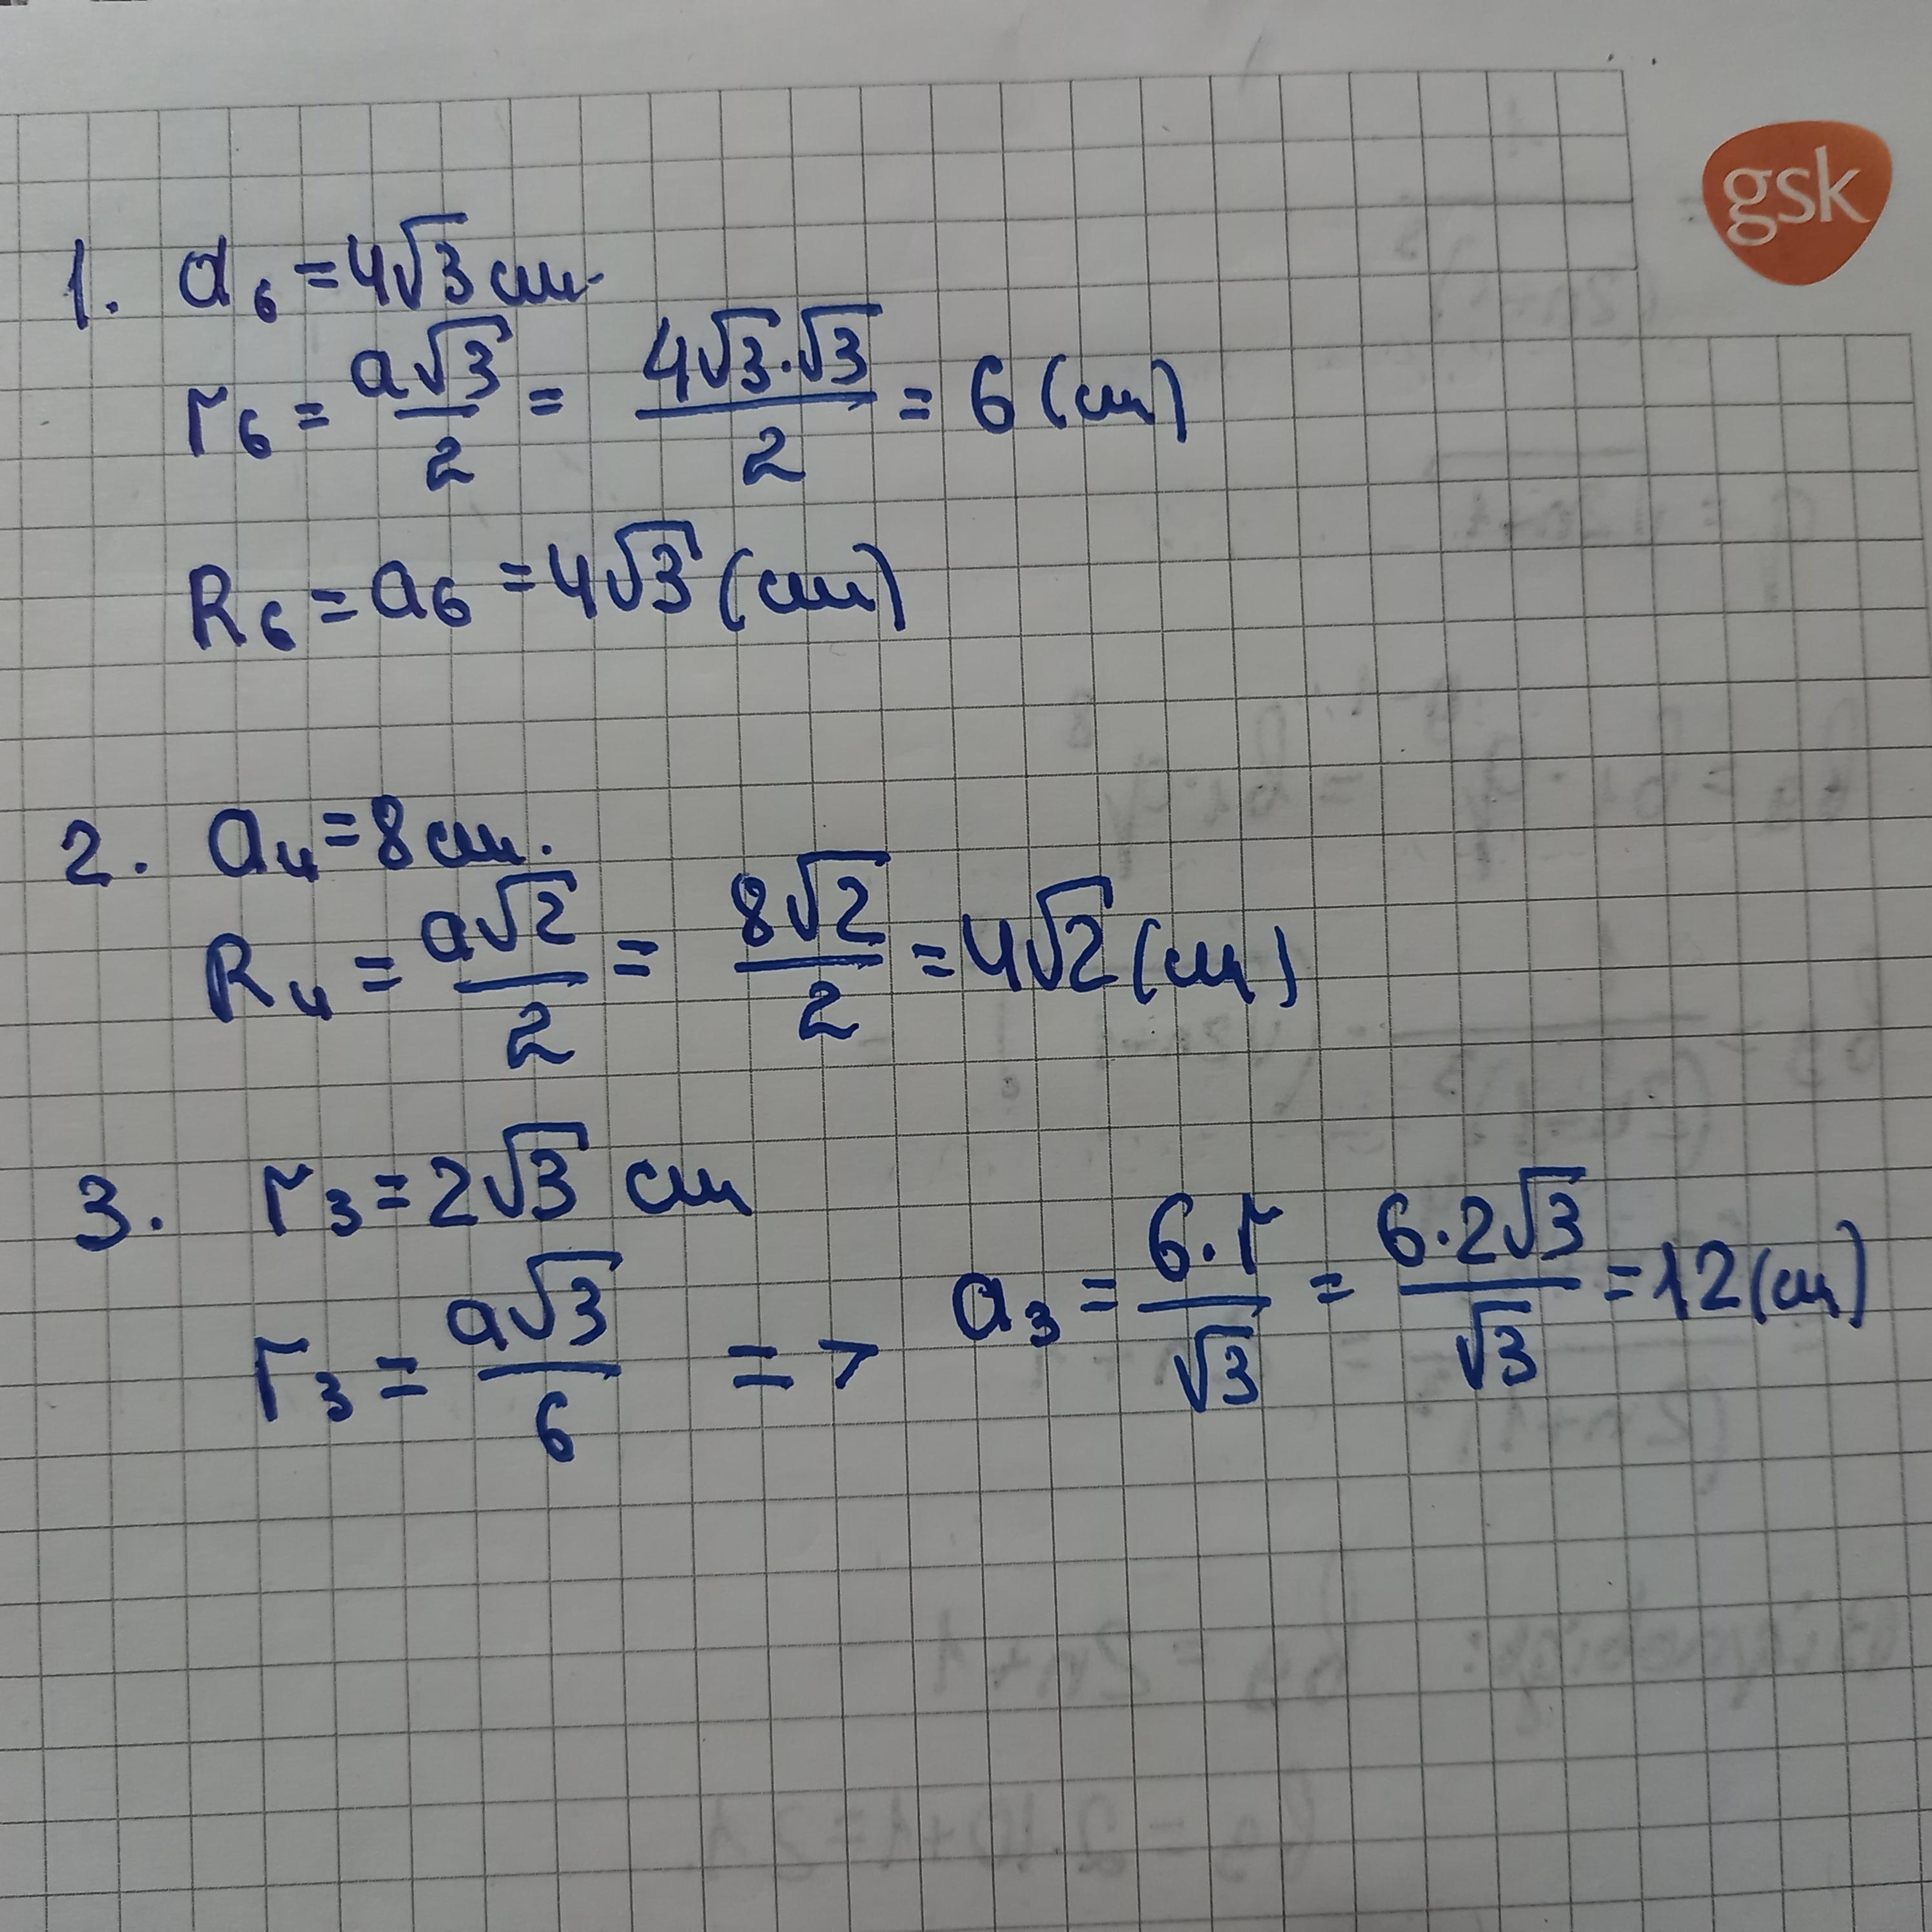 gsk
1. a₆ = 4√3 см.
r₆ = a√3/2 = 4√3·√3/2 = 6 (см)
R₆ = a₆ = 4√3 (см)
2. a₄ = 8 см.
R₄ = a√2/2 = 8√2/2 = 4√2 (см)
3. r₃ = 2√3 см
r₃ = a√3/6 => a₃ = 6·r/√3 = 6·2√3/√3 = 12 (см)